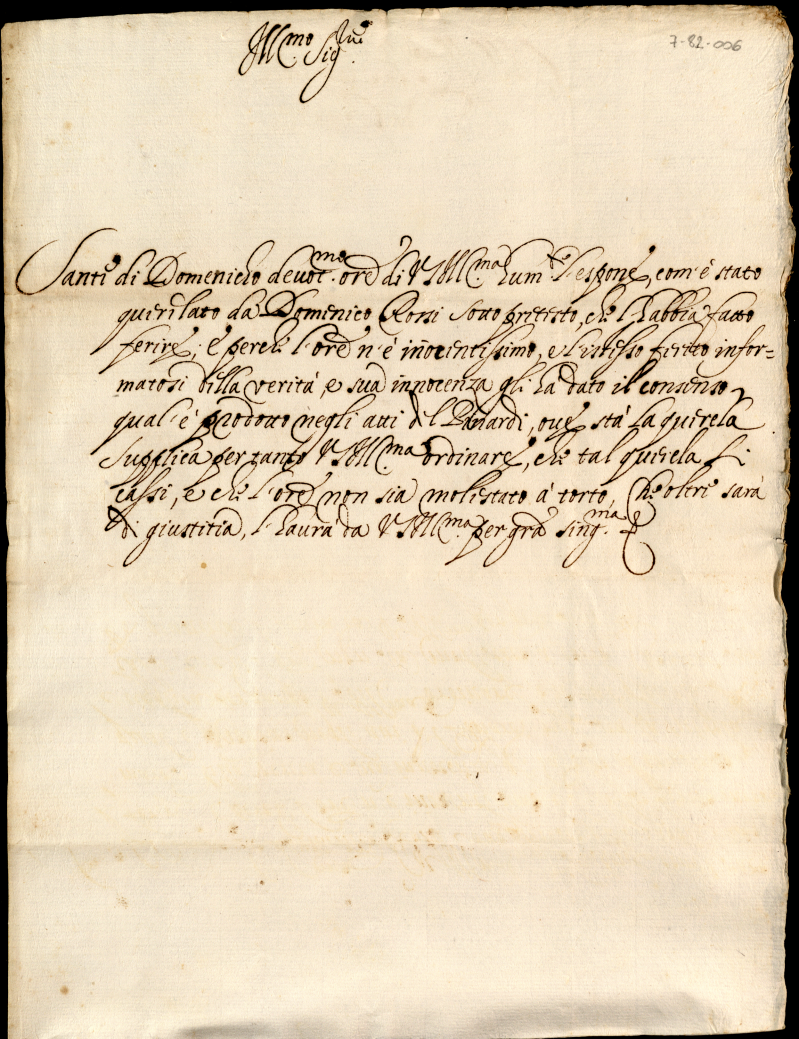 Ill.mo Sig.re
7-82-006
Santi di Domenicho devot.mo ore di V.S. Ill.ma hum.te l'espone, com'è stato
querelato da Domenico Rossi sotto pretesto, che l'habbia fatto
ferire; e perche l'ore n'è inocentissimo, e l'istesso ferito infor-
matosi della verità, e sua innocenza gli ha dato il consenso
qual'è prodotto negli atti del, ove stà la querela
Supplica per tanto V.S. Ill.ma ordinare, che tal querela si
cassi, e che l'ore non sia molestato à torto, Che oltre sarà
di giustitia, l'haurà da V.S. Ill.ma per gra sing.ma